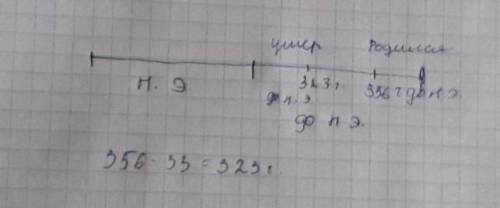 умер Родился
Н. Э 323 г. 356 г до н э.
до н. э
до н э.
356 - 33 = 323 г.